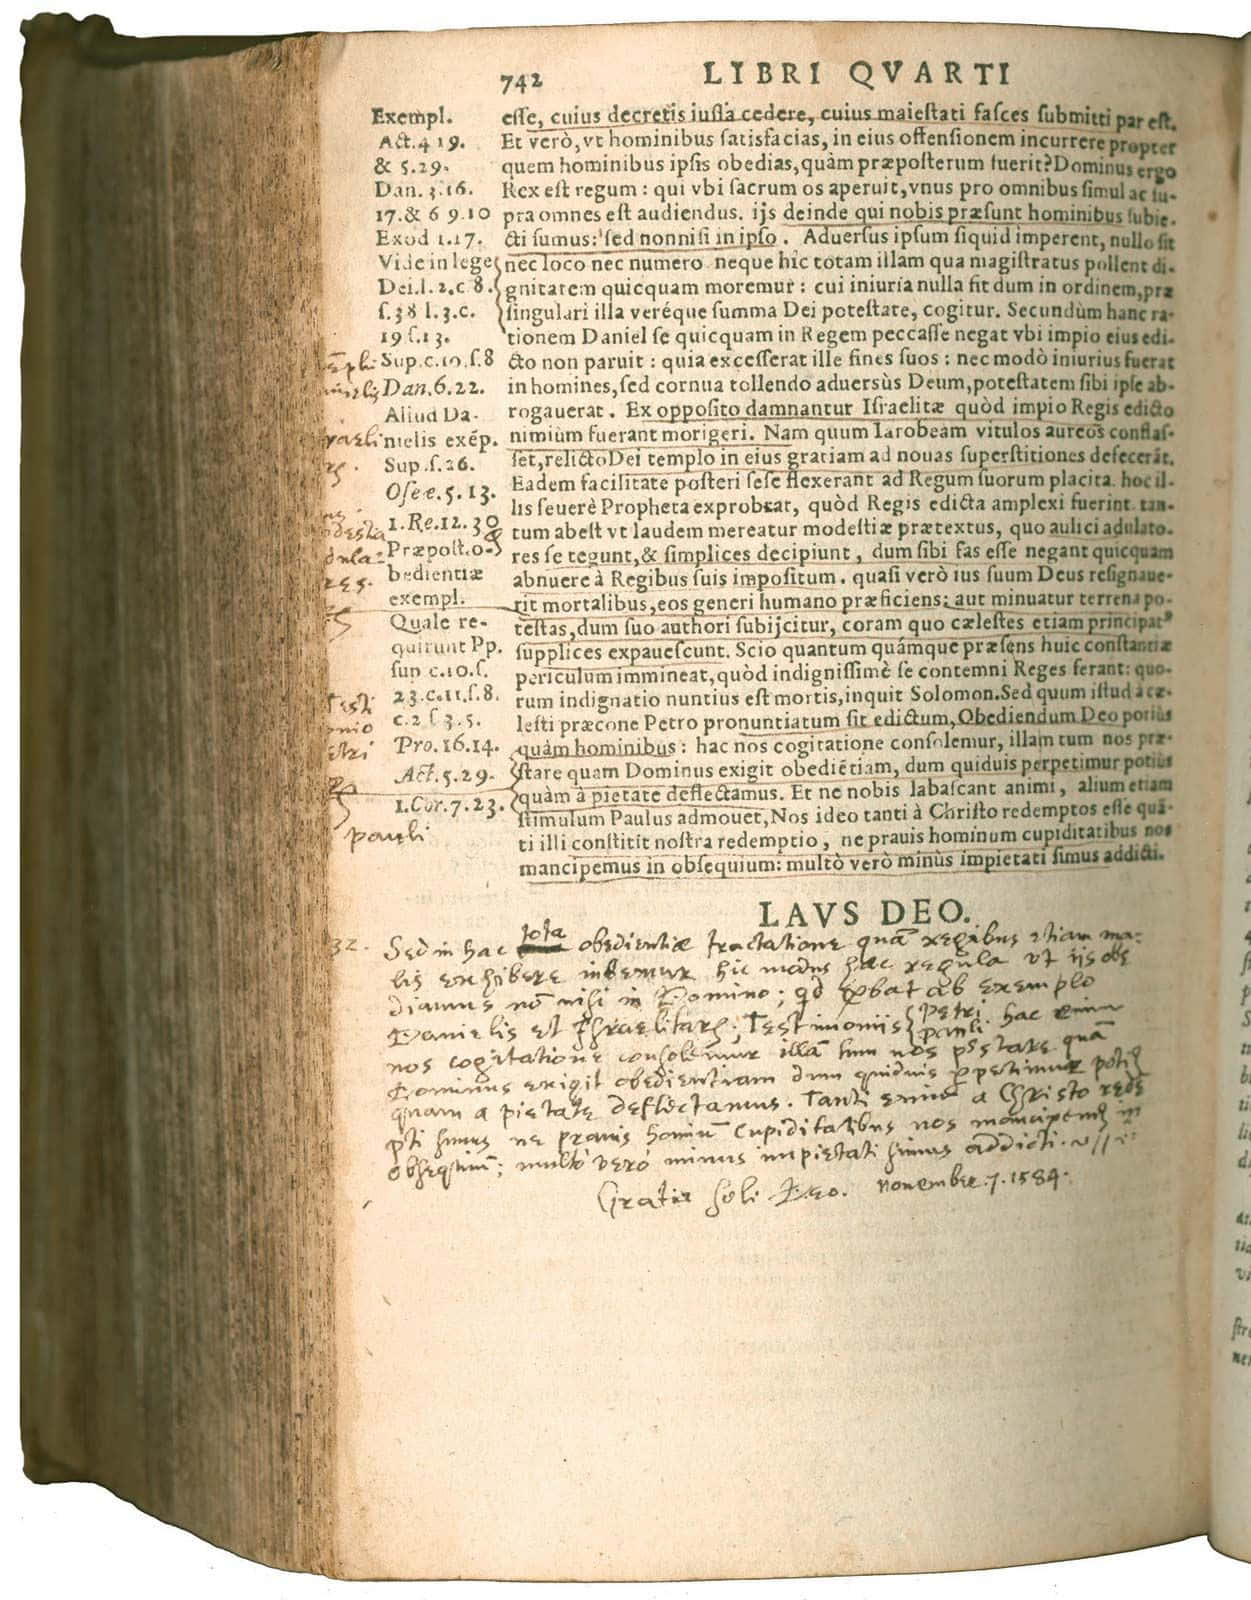 742 LIBRI QVARTI
Exempl.
Act. 4 19.
& 5.29.
Dan. 3.16.
17. & 6 9.10
Exod 1.17.
Vide in lege
Dei. l. 2. c 8.
s. 38 l. 3. c.
19 s. 13.
Sup. c. 10. s. 8
Dan. 6. 22.
Aliud Da-
nielis exẽp.
Sup. s. 26.
Osee. 5. 13.
1. Re. 12. 30
Præpost. o-
bedientiæ
exempl.
Quale re-
quirunt Pp.
sup c. 10. s.
23. c. 11. s. 8.
c. 2 s 3. 5.
Pro. 16. 14.
Act. 5. 29.
1. Cor. 7. 23.
pauli
esse, cuius decretis iussa cedere, cuius maiestati fasces submitti par est.
Et verò, vt hominibus satisfacias, in eius offensionem incurrere propter
quem hominibus ipsis obedias, quàm præposterum fuerit? Dominus ergo
Rex est regum : qui vbi sacrum os aperuit, vnus pro omnibus simul ac su-
pra omnes est audiendus. ijs deinde qui nobis præsunt hominibus subie-
cti sumus: sed nonnisi in ipso . Aduersus ipsum siquid imperent, nullo sit
nec loco nec numero neque hic totam illam qua magistratus pollent di-
gnitatem quicquam moremur : cui iniuria nulla fit dum in ordinem, præ
singulari illa veréque summa Dei potestate, cogitur. Secundùm hanc ra-
tionem Daniel se quicquam in Regem peccasse negat vbi impio eius edi-
cto non paruit : quia excesserat ille fines suos : nec modò iniurius fuerat
in homines, sed cornua tollendo aduersùs Deum, potestatem sibi ipse ab-
rogauerat . Ex opposito damnantur Israelitæ quòd impio Regis edicto
nimiùm fuerant morigeri. Nam quum Iarobeam vitulos aureos conflas-
set, relicto Dei templo in eius gratiam ad nouas superstitiones defecerãt.
Eadem facilitate posteri sese flexerant ad Regum suorum placita. hoc il-
lis seuerè Propheta exprobrat, quòd Regis edicta amplexi fuerint. tan-
tum abest vt laudem mereatur modestiæ prætextus, quo aulici adulato-
res se tegunt, & simplices decipiunt , dum sibi fas esse negant quicquam
abnuere à Regibus suis impositum . quasi verò ius suum Deus resignaue-
rit mortalibus, eos generi humano præficiens: aut minuatur terrena po-
testas, dum suo authori subijcitur, coram quo cælestes etiam principat⁹
supplices expauescunt. Scio quantum quámque præsens huic constantiæ
periculum immineat, quòd indignissimè se contemni Reges ferant: quo-
rum indignatio nuntius est mortis, inquit Solomon. Sed quum istud à cæ-
lesti præcone Petro pronuntiatum sit edictum, Obediendum Deo potius
quàm hominibus : hac nos cogitatione consolemur, illam tum nos præ-
stare quam Dominus exigit obediẽtiam, dum quiduis perpetimur potius
quàm à pietate deflectamus. Et ne nobis labascant animi , alium etiam
stimulum Paulus admouet, Nos ideo tanti à Christo redemptos esse quã-
ti illi constitit nostra redemptio , ne prauis hominum cupiditatibus nos
mancipemus in obsequium: multò verò minùs impietati simus addicti.
LAVS DEO.
32. Sed in hac tota obedientiæ tractatione quã regibus etiam ma-
lis exhibere iubemur hic modus hæc regula vt iis obe
diamus nõ nisi in Domino; qd ꝓbat ab exemplo
Danielis et Israelitarꝫ; Testimoniis { Petri pauli. hac enim
nos cogitatione consolemur illã tum nos pꝰstare quã
Dominus exigit obedientiam dum quiduis ꝑpetimur poti⁹
quam a pietate deflectamus. Tanti enim a Christo redẽ
pti sumus ne prauis hominũ cupiditatibus nos mancipem⁹ in
obsequium; multo vero minus impietati simus addicti.
Gratia soli Deo. november. 7. 1584.